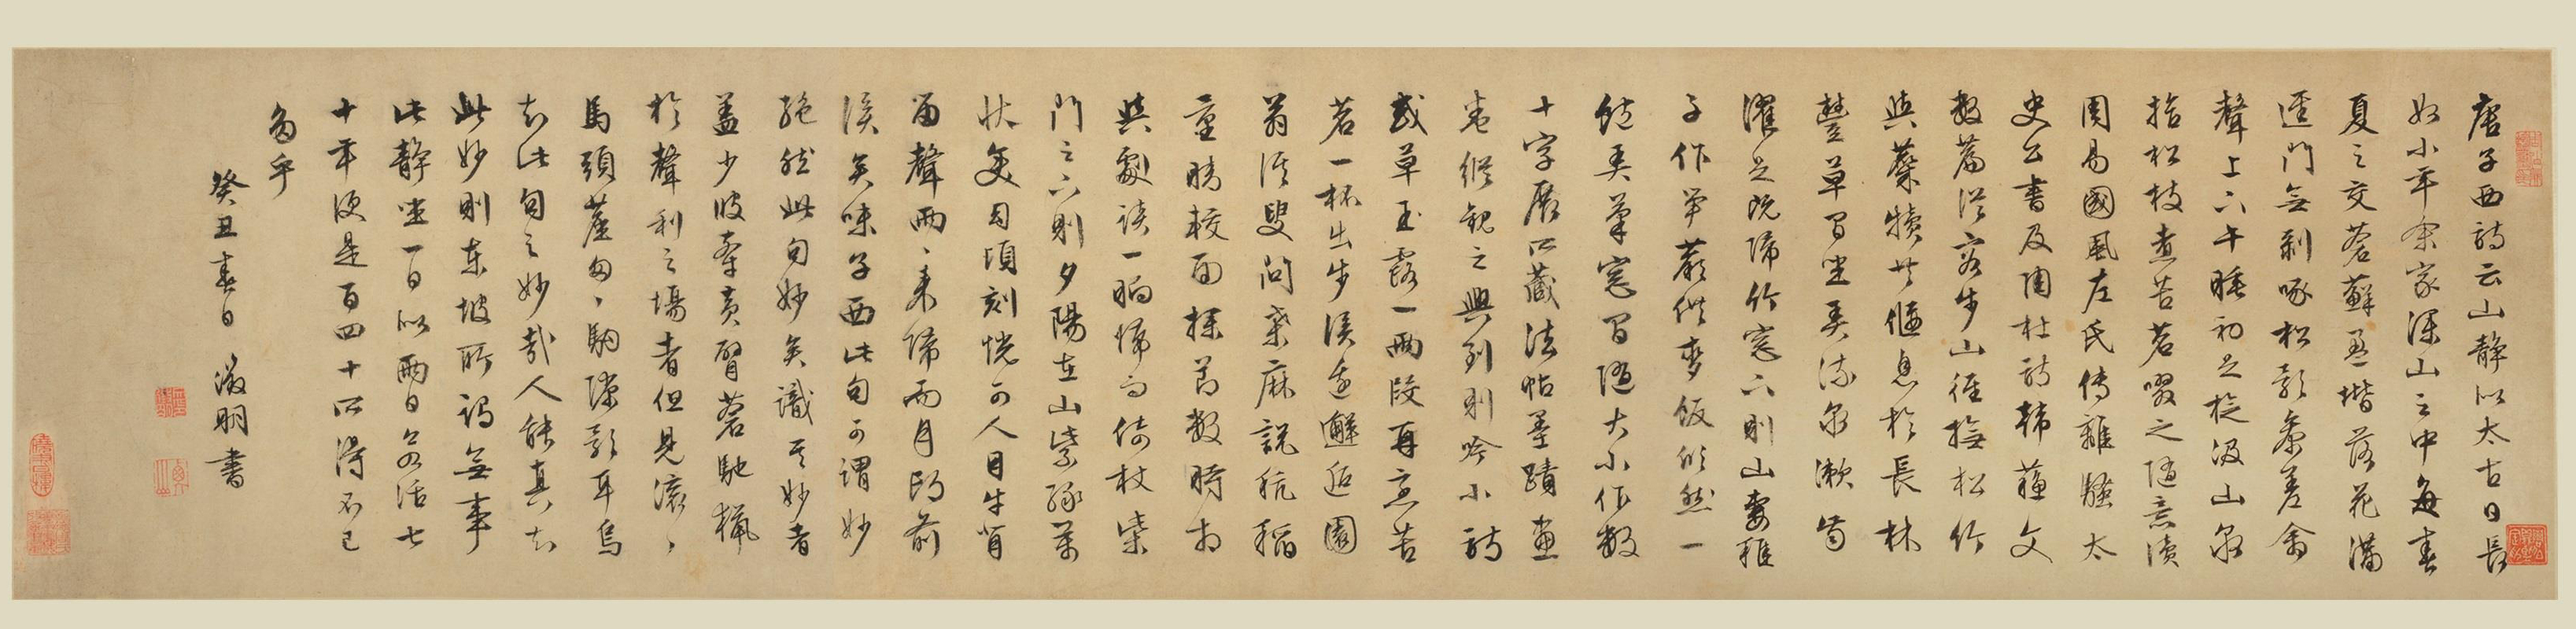 唐子西詩云山靜似太古日長
如小年余家深山之中每春
夏之交蒼蘚盈堦落花滿
逕門無剥啄松影參差禽
聲上下午睡初足旋汲山泉
拾松枝煮苦茗啜之隨意讀
周易國風左氏傳離騷太
史公書及陶杜詩韓蘇文
數篇從容步山徑撫松竹
與麋犢共偃息於長林
豐草間坐弄流泉漱齒
濯足既歸竹窓下則山妻稚
子作笋蕨供麥飯欣然一
飽弄筆窓間隨大小作數
十字展所藏法帖墨蹟畫
卷縱觀之興到則吟小詩
或草玉露一兩段再烹苦
茗一杯出步溪邊邂逅園
翁溪叟問桑麻説秔稻
量晴校雨探節數時相
與劇談一晌歸而倚杖柴
門之下則夕陽在山紫綠萬
狀變幻頃刻恍可人目牛背
笛聲兩兩來歸而月印前
溪矣味子西此句可謂妙
絶然此句妙矣識其妙者
蓋少彼牽黃臂蒼馳獵
於聲利之場者但見滾滾
馬頭塵匆匆駒隙影耳烏
知此句之妙哉人能真知
此妙則東坡所謂無事
此靜坐一日似兩日若活七
十年便是百四十所得不已
多乎
癸丑春日 徵明書